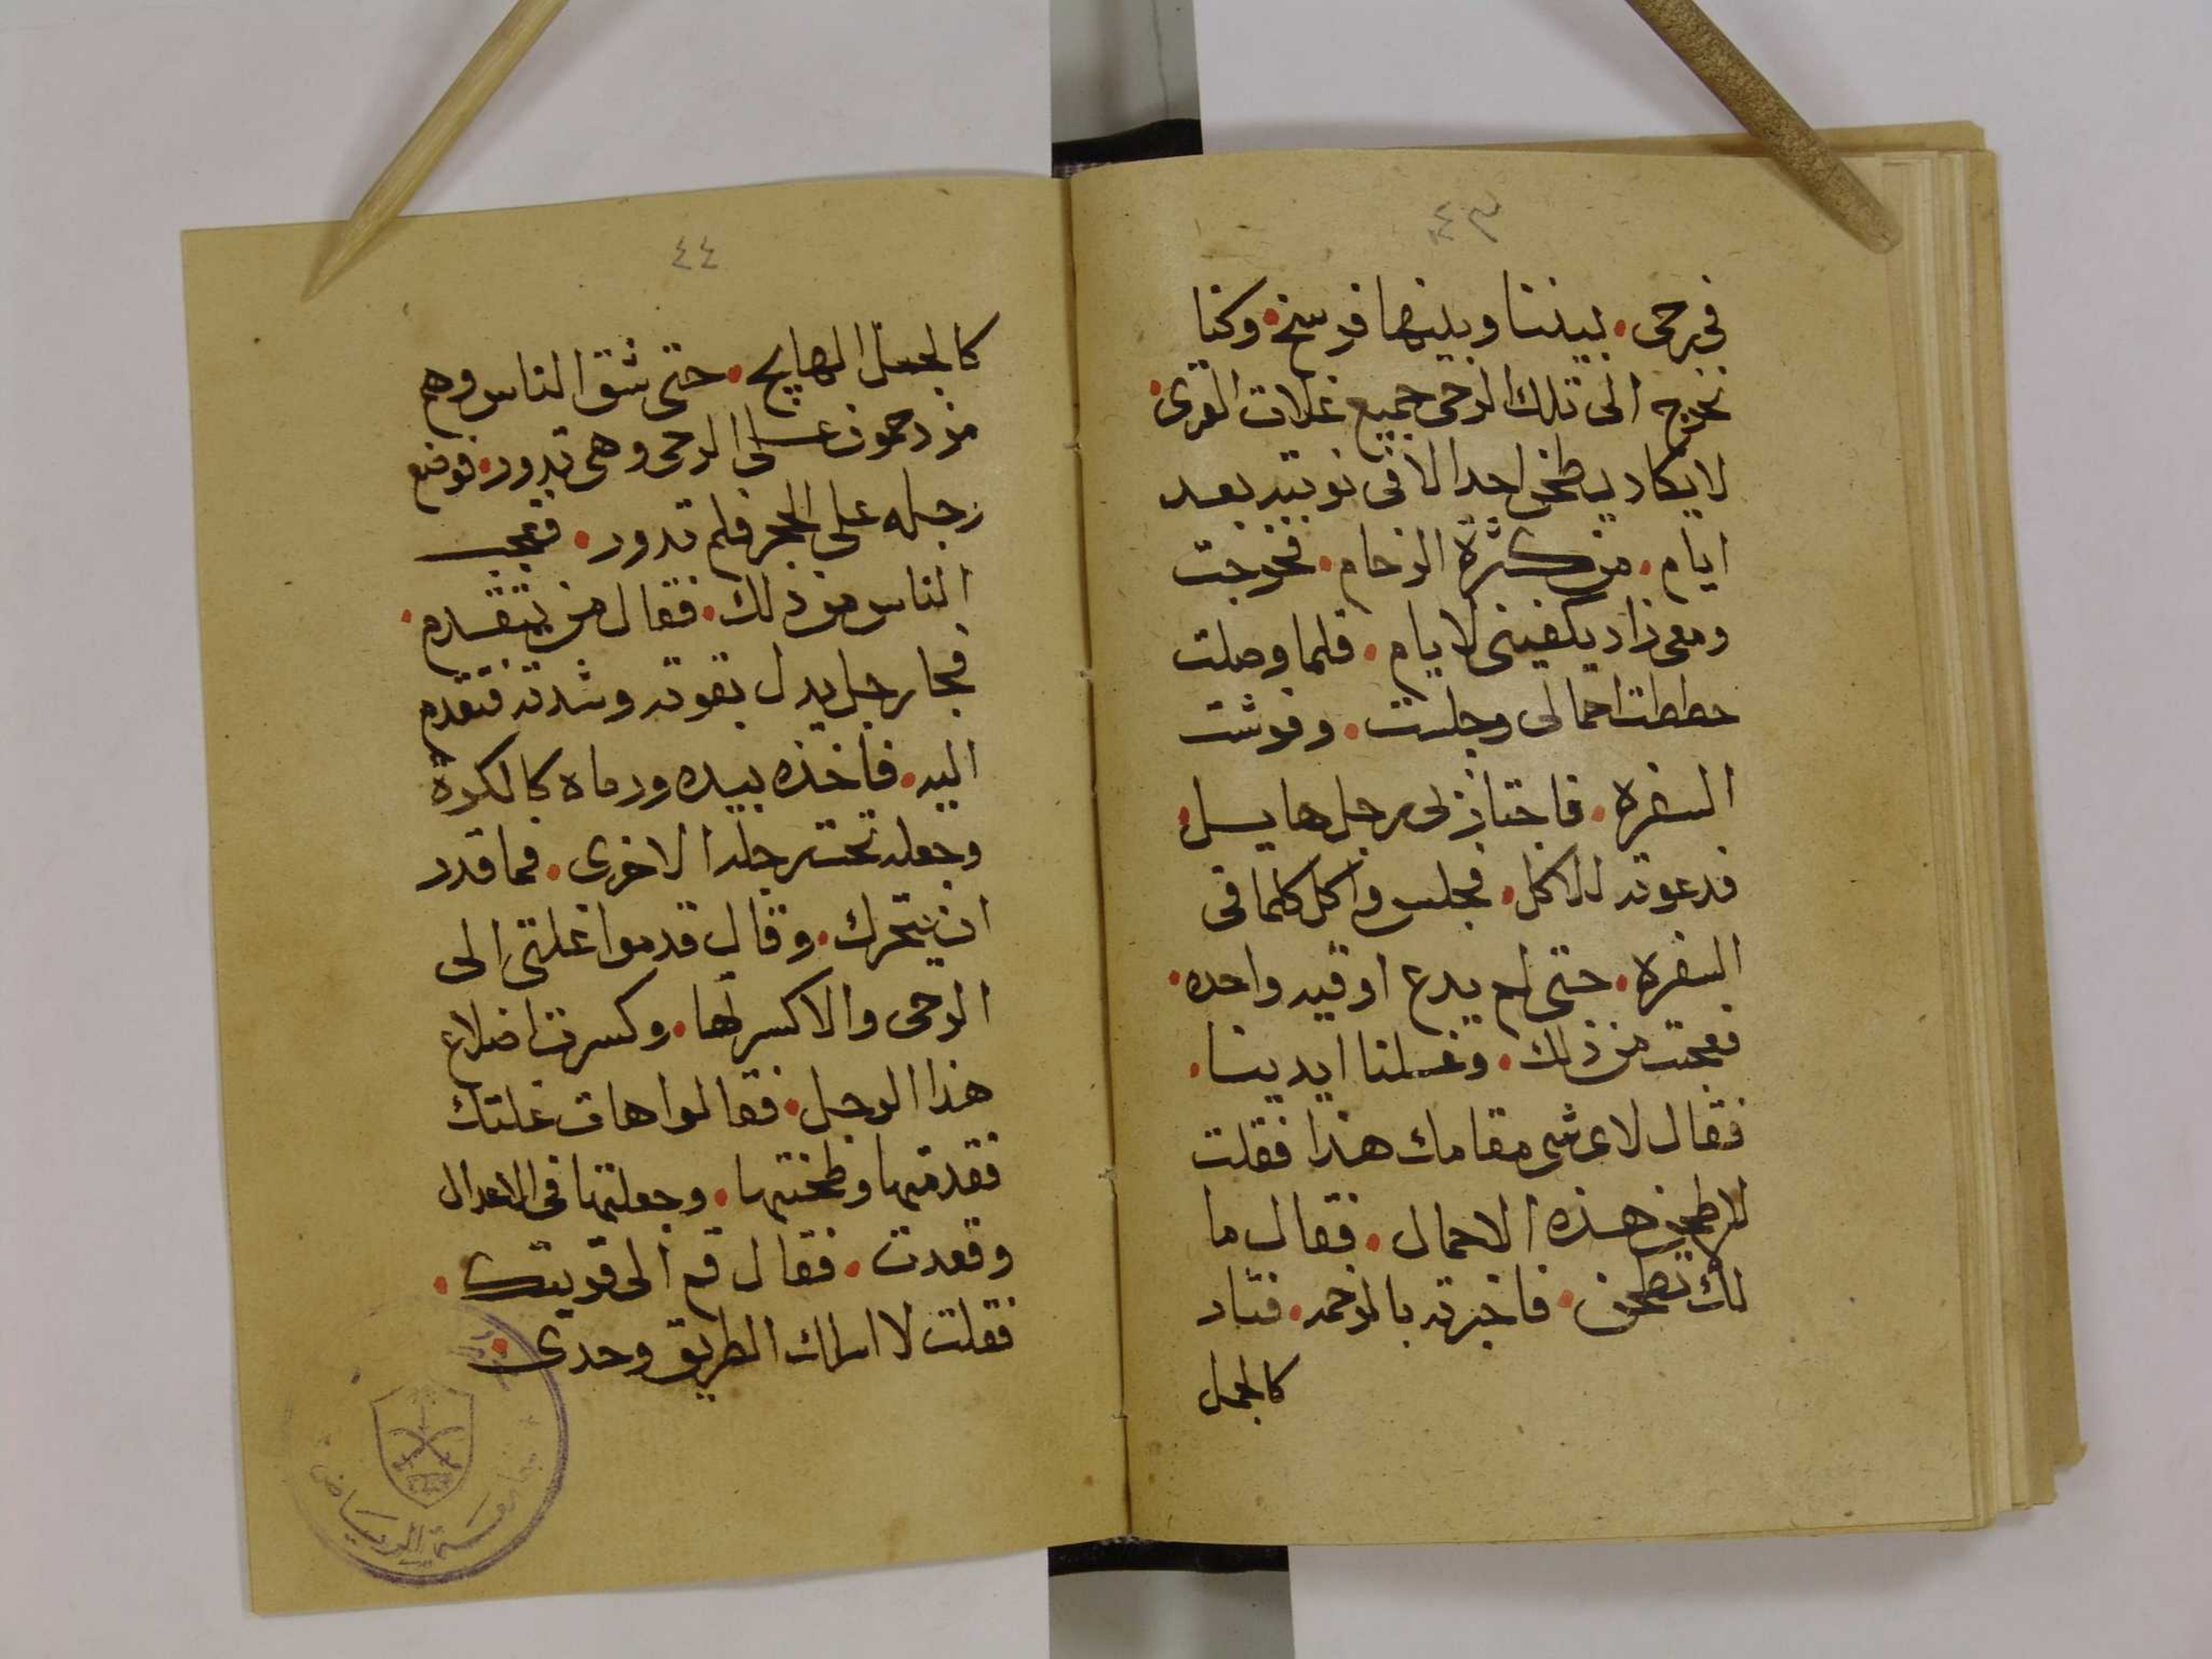 ٤٣
فى رحى . بيننا وبينها فرسخ . وكنا
نخرج الى تلك الرحى جميع غلات القرى .
لا يكاد يطحن احدا الا فى نوبته بعد
ايام . من كثرة الزحام . فخرجت
ومعى زاد يكفينى لايام . فلما وصلت
حططت احمالى وجلست . وفرشت
السفره . فاجتاز لى رجل هايل .
فدعوته للاكل . فجلس واكل كلما فى
السفره . حتى لم يدع اوقيه واحده .
فعجبت من ذلك . وغسلنا ايدينا .
فقال لاى شى مقامك هذا فقلت
لاطحن هذه الاحمال . فقال ما
لك تطحن . فاخبرته بالزحمه . فثار
كالجمل
٤٤
كالجمل الهايج . حتى شق الناس وهم
مزدحمون على الرحى وهى تدور . فوضع
رجله على الحجر فلم تدور . فعجب
الناس من ذلك . فقال من يتقدم .
فجا رجل يدل بقوته وشدته فتقدم
اليه . فاخذه بيده ورماه كالكرة
وجعله تحت رجله الاخرى . فما قدر
ان يتحرك . وقال قدموا غلتى الى
الرحى والا كسرتها . وكسرت اضلاع
هذا الرجل . فقالوا هات غلتك
فقدمتها وطحنتها . وجعلتها فى الاعدال
وقعدت . فقال قم الى قريتك .
فقلت لا اسلك الطريق وحدى .
جامعة الرياض